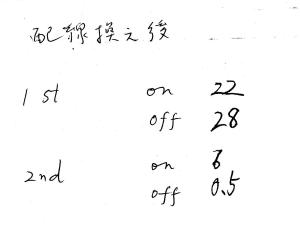 配線換え後
1st on 22
off 28
2nd on 6
off 0.5